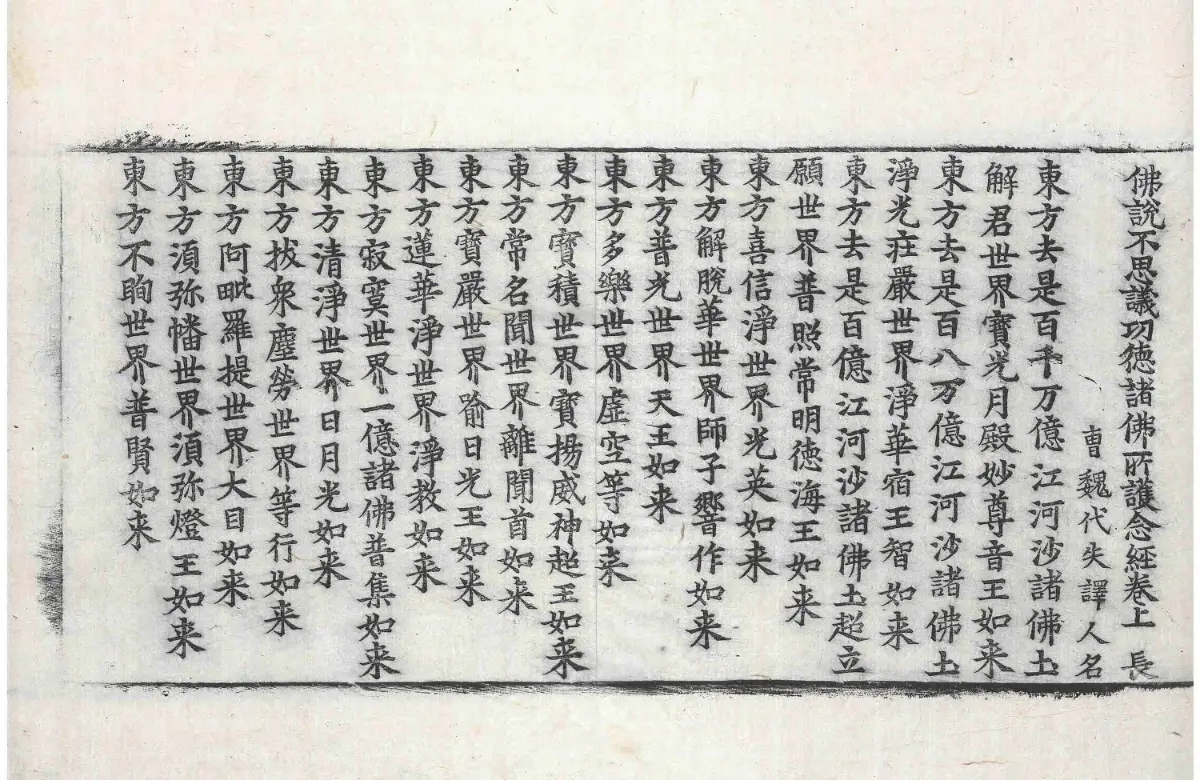 佛說不思議功德諸佛所護念經卷上 長
曹魏代失譯人名
東方去是百千万億江河沙諸佛土
解君世界寶光月殿妙尊音王如来
東方去是百八万億江河沙諸佛土
淨光莊嚴世界淨華宿王智如来
東方去是百億江河沙諸佛土超立
願世界普照常明德海王如来
東方喜信淨世界光英如来
東方解脫華世界師子響作如来
東方普光世界天王如来
東方多樂世界虛空等如来
東方寶積世界寶揚威神超王如来
東方常名聞世界離聞首如来
東方寶嚴世界踰日光王如来
東方蓮華淨世界淨教如来
東方寂寞世界一億諸佛普集如来
東方清淨世界日月光如来
東方拔衆塵勞世界等行如来
東方阿毗羅提世界大目如来
東方須弥幡世界須弥燈王如来
東方不眴世界普賢如来